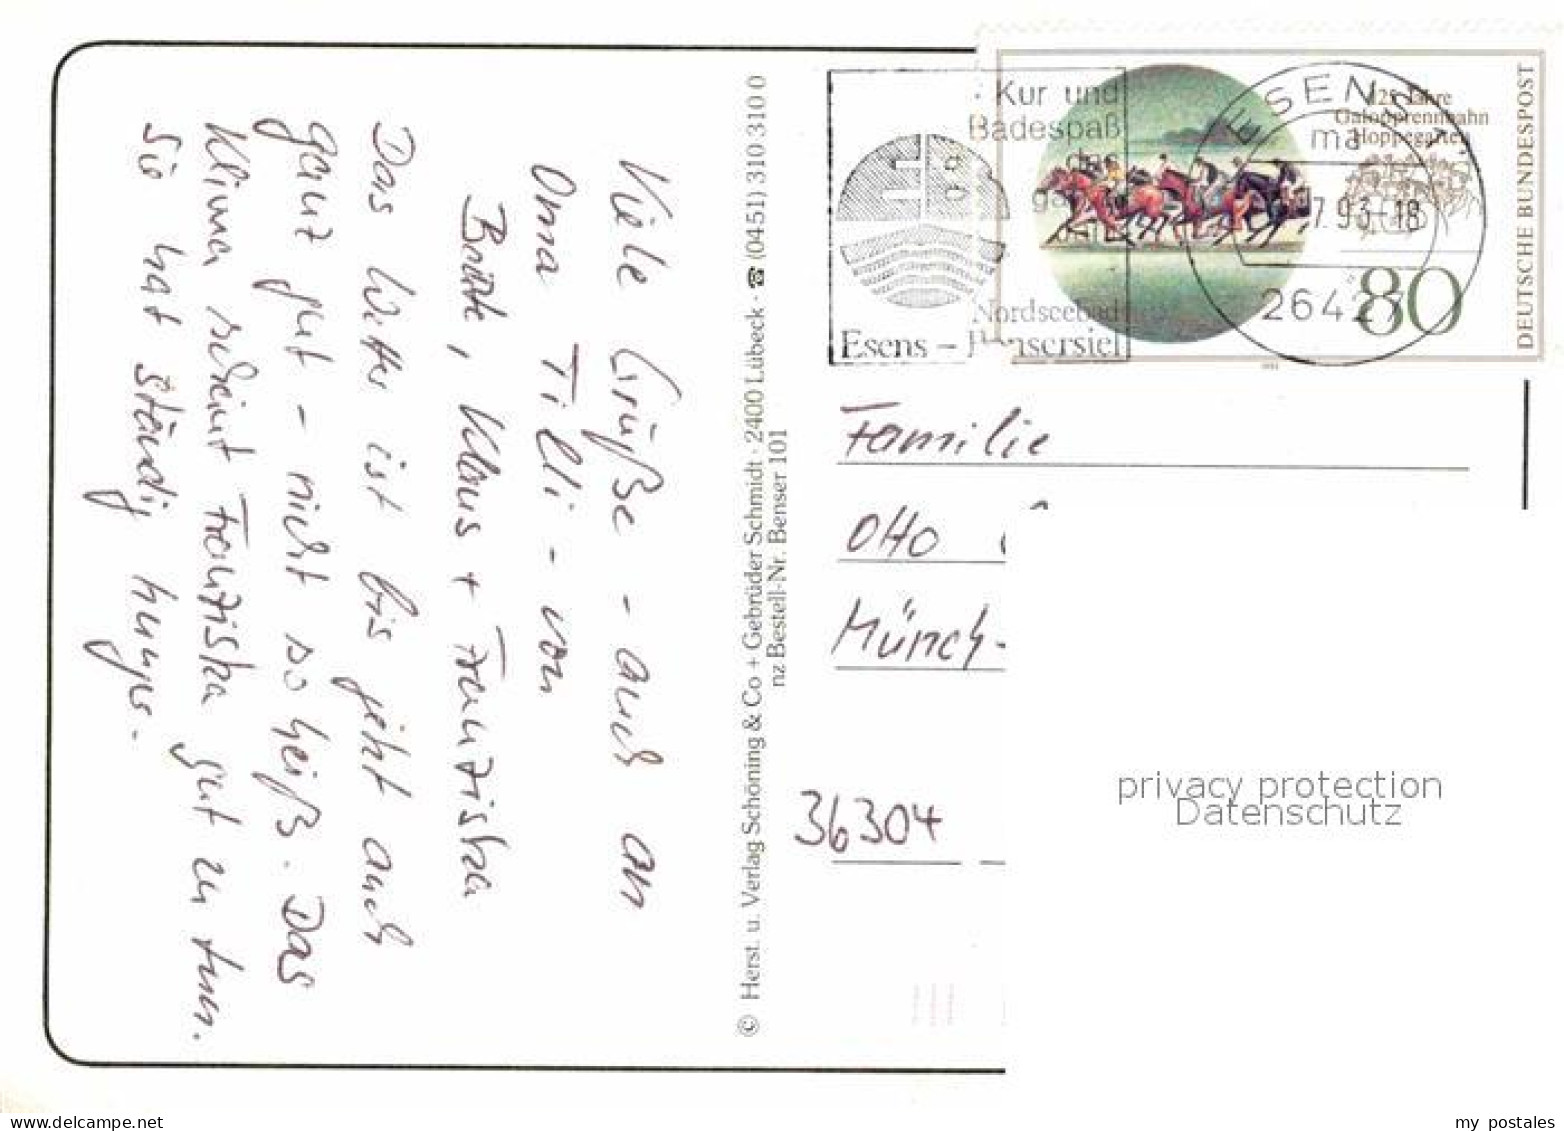 Viele Grüße - auch an
Oma Tilli - von
Britte, Klaus + Franziska
Das Wetter ist bis jetzt auch
ganz gut - nicht so heiß. Das
Klima scheint Franziska gut zu tun.
Sie hat ständig hunger.
© Herst. u. Verlag Schöning & Co + Gebrüder Schmidt · 2400 Lübeck · ☎ (0451) 310 310 0
nz Bestell-Nr. Benser 101
Kur und
Badespaß
das
ganze
Nordseebad
Esens - Bensersiel
ESENS
ma
7.93-18
26427
125 Jahre
Galopprennbahn
Hoppegarten
80
DEUTSCHE BUNDESPOST
Familie
Otto
Münch-
36304
privacy protection
Datenschutz
delcampe.net
my_postales